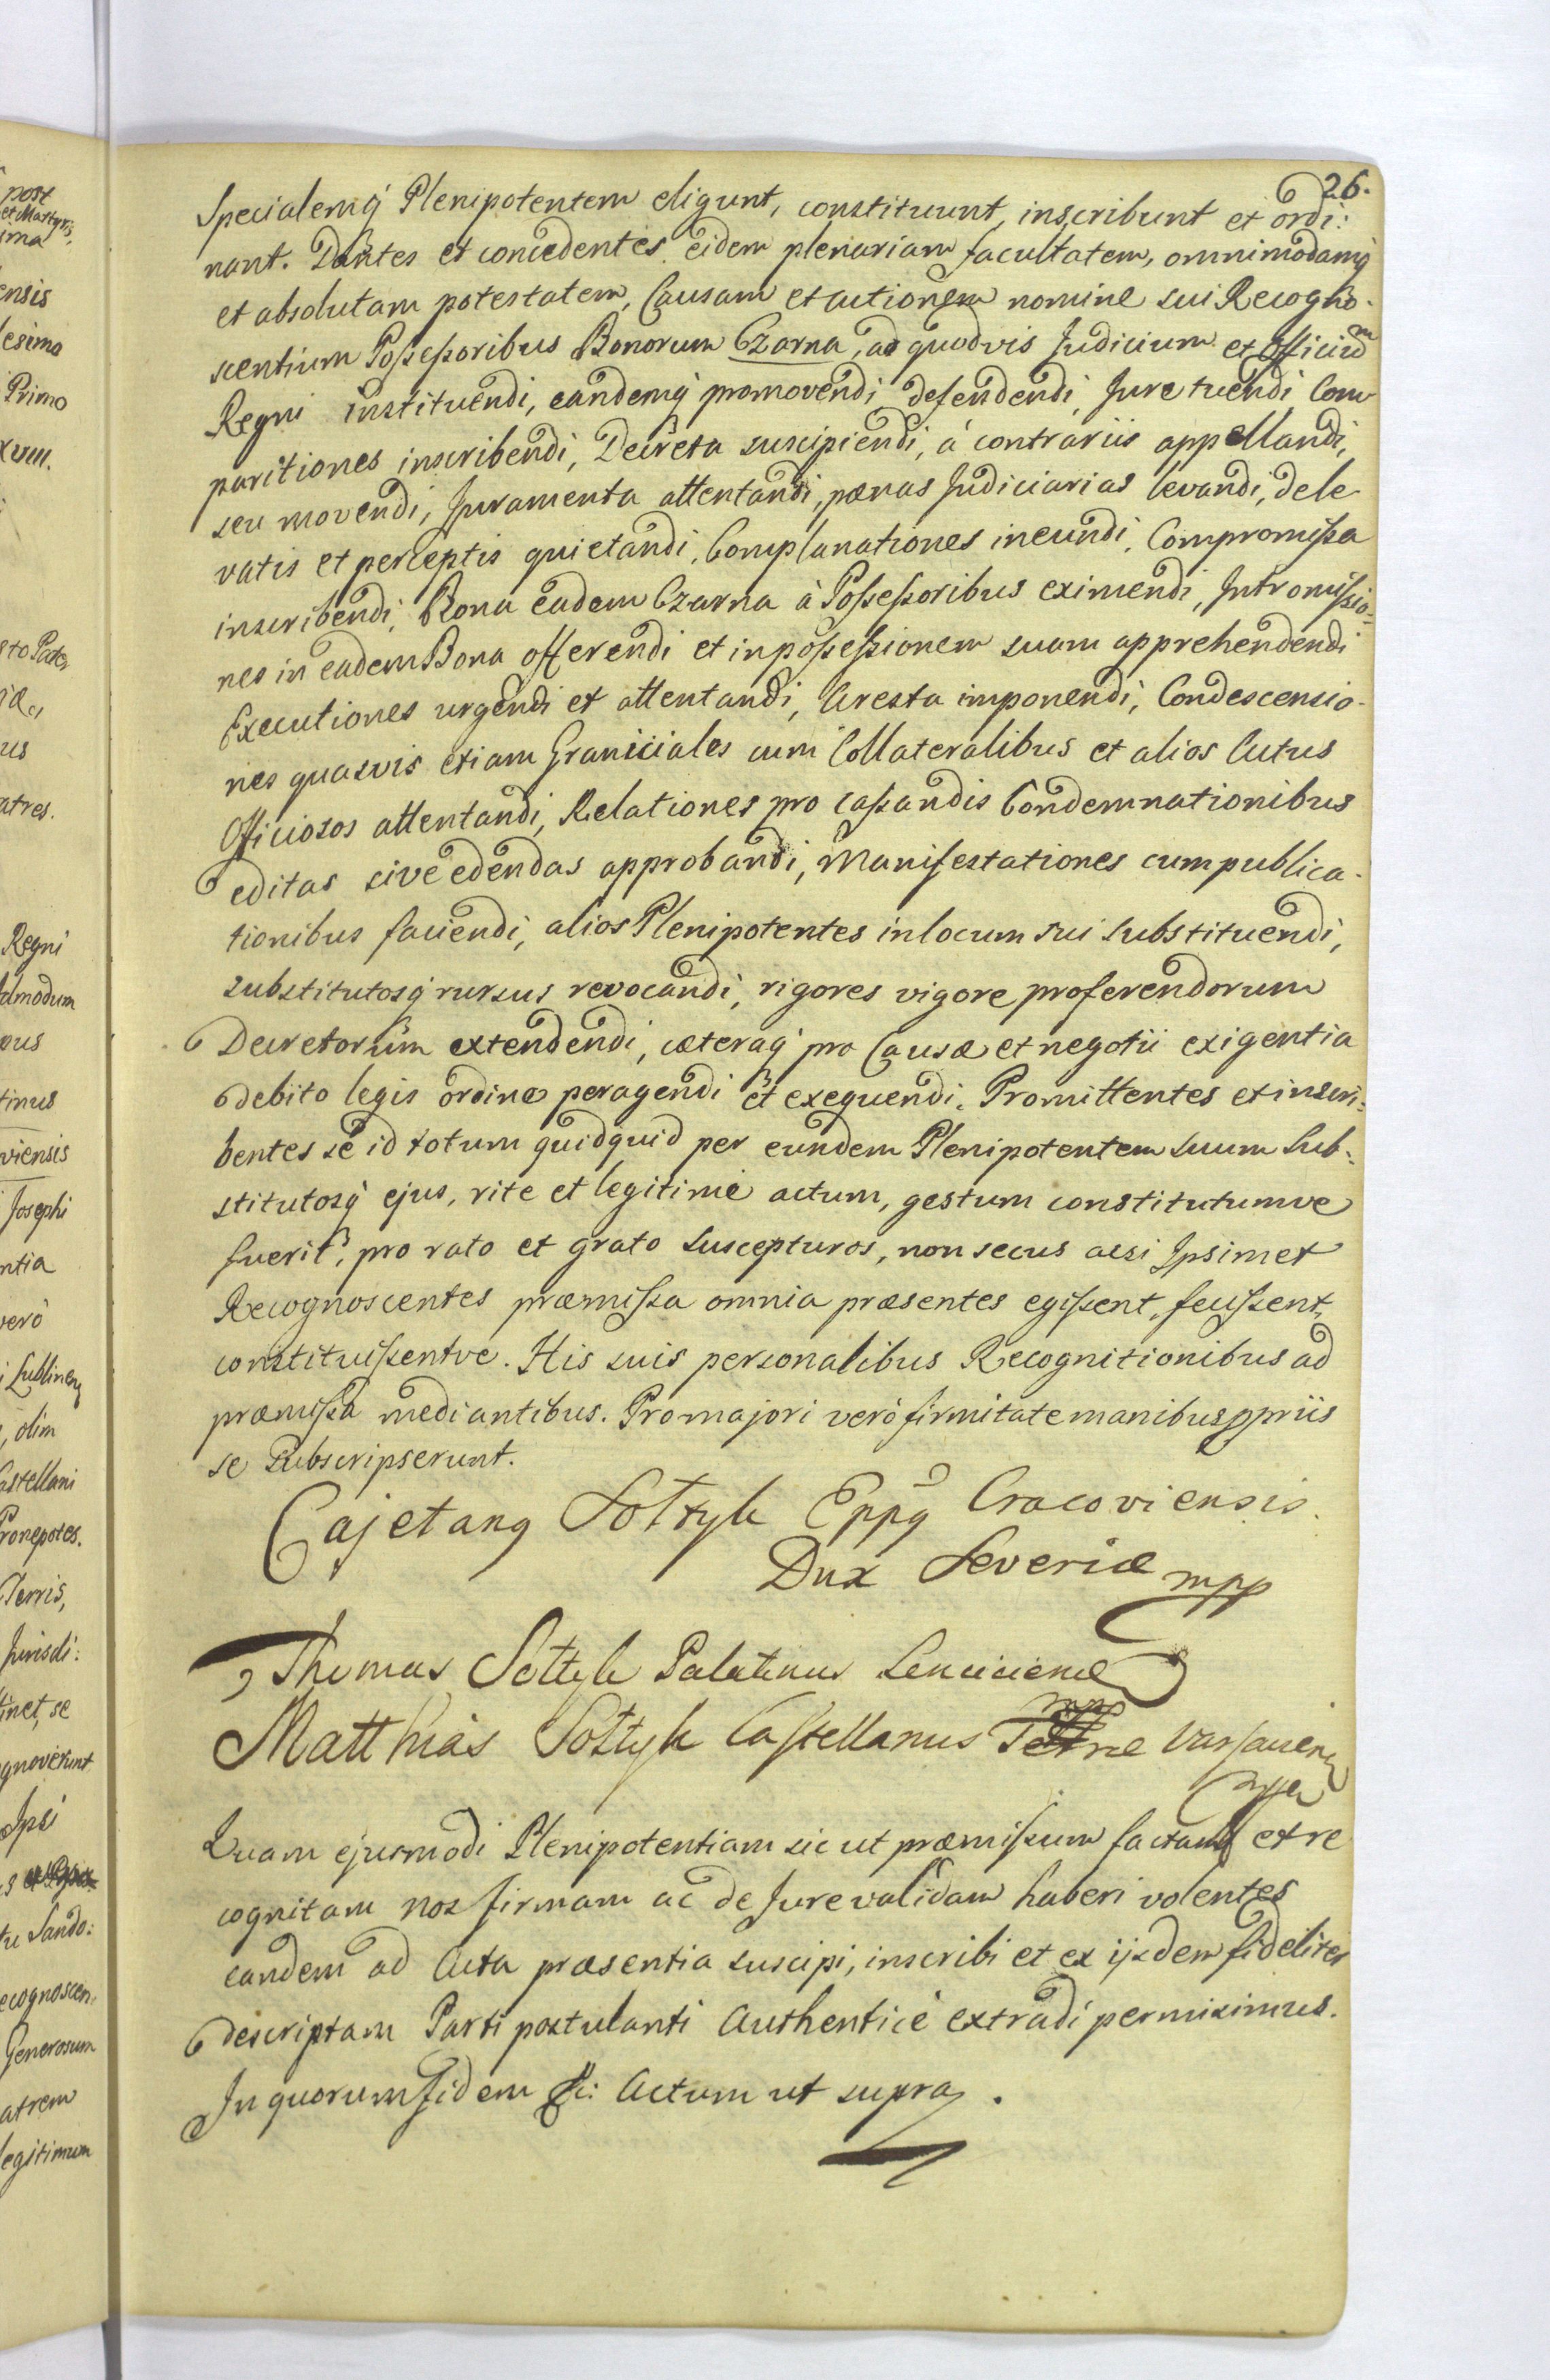 26.
Specialemq́ Plenipotentem eligunt, constituunt, inscribunt et ordi:
nant. Dantes et concedentes eidem plenariam facultatem, omnimodamq́
et absolutam potestatem, Causam et actionem nomine sui Recogno-
scentium Possessoribus Bonorum Czarna, ad quodvis Judicium et Officiũ
Regni instituendi, eandemq́ promovendi, defendendi, Jure tuendi Com
paritiones inscribendi, Decreta suscipiendi, à contrariis appellandi,
seu movendi, Juramenta attentandi, pœnas Judiciarias levandi, de le
vatis et perceptis quietandi, Complanationes ineundi, Compromissa
inscribendi, Bona eadem Czarna à Possessoribus eximendi, Intromissio=
nes in eadem Bona offerendi et in possessionem suam apprehendendi
Executiones urgendi et attentandi, Aresta imponendi, Condescensio-
nes quasvis etiam Graniciales cum Collateralibus et alios Actus
Officiosos attentandi, Relationes pro cassandis Condemnationibus
editas sive edendas approbandi, Manifestationes cum publica-
tionibus faciendi, alios Plenipotentes in locum sui substituendi,
substitutosq́ rursus revocandi, rigores vigore proferendorum
Decretorum extendendi, cæteraq́ pro Causæ et negotii exigentia
debito legis ordine peragendi et exequendi. Promittentes et inscri=
bentes se id totum quidquid per eundem Plenipotentem suum Sub=
stitutosq́ ejus, rite et legitime actum, gestum constitutumve
fuerit, pro rato et grato suscepturos, non secus acsi Ipsimet
Recognoscentes præmissa omnia præsentes egissent, fecissent,
constituissentve. His suis personalibus Recognitionibus ad
præmissa mediantibus. Pro majori verò firmitate manibus ppriis
se Subscripserunt.
Cajetang Sołtyk Eppq Cracoviensis
Dux Severiæ mpp
Thomas Sołtyk Palatinus Lenciciensis
Matthias Sołtyk Castellanus Terræ Varsavien
mpp
Quam ejusmodi Plenipotentiam sic ut præmissum factam et re
cognitam nos firmam ac de Jure validam haberi volentes
eandem ad Acta præsentia suscipi, inscribi et ex ijsdem fideliter
descriptam Parti postulanti Authenticè extradi permisimus.
In quorum fidem &c: Actum ut supra.